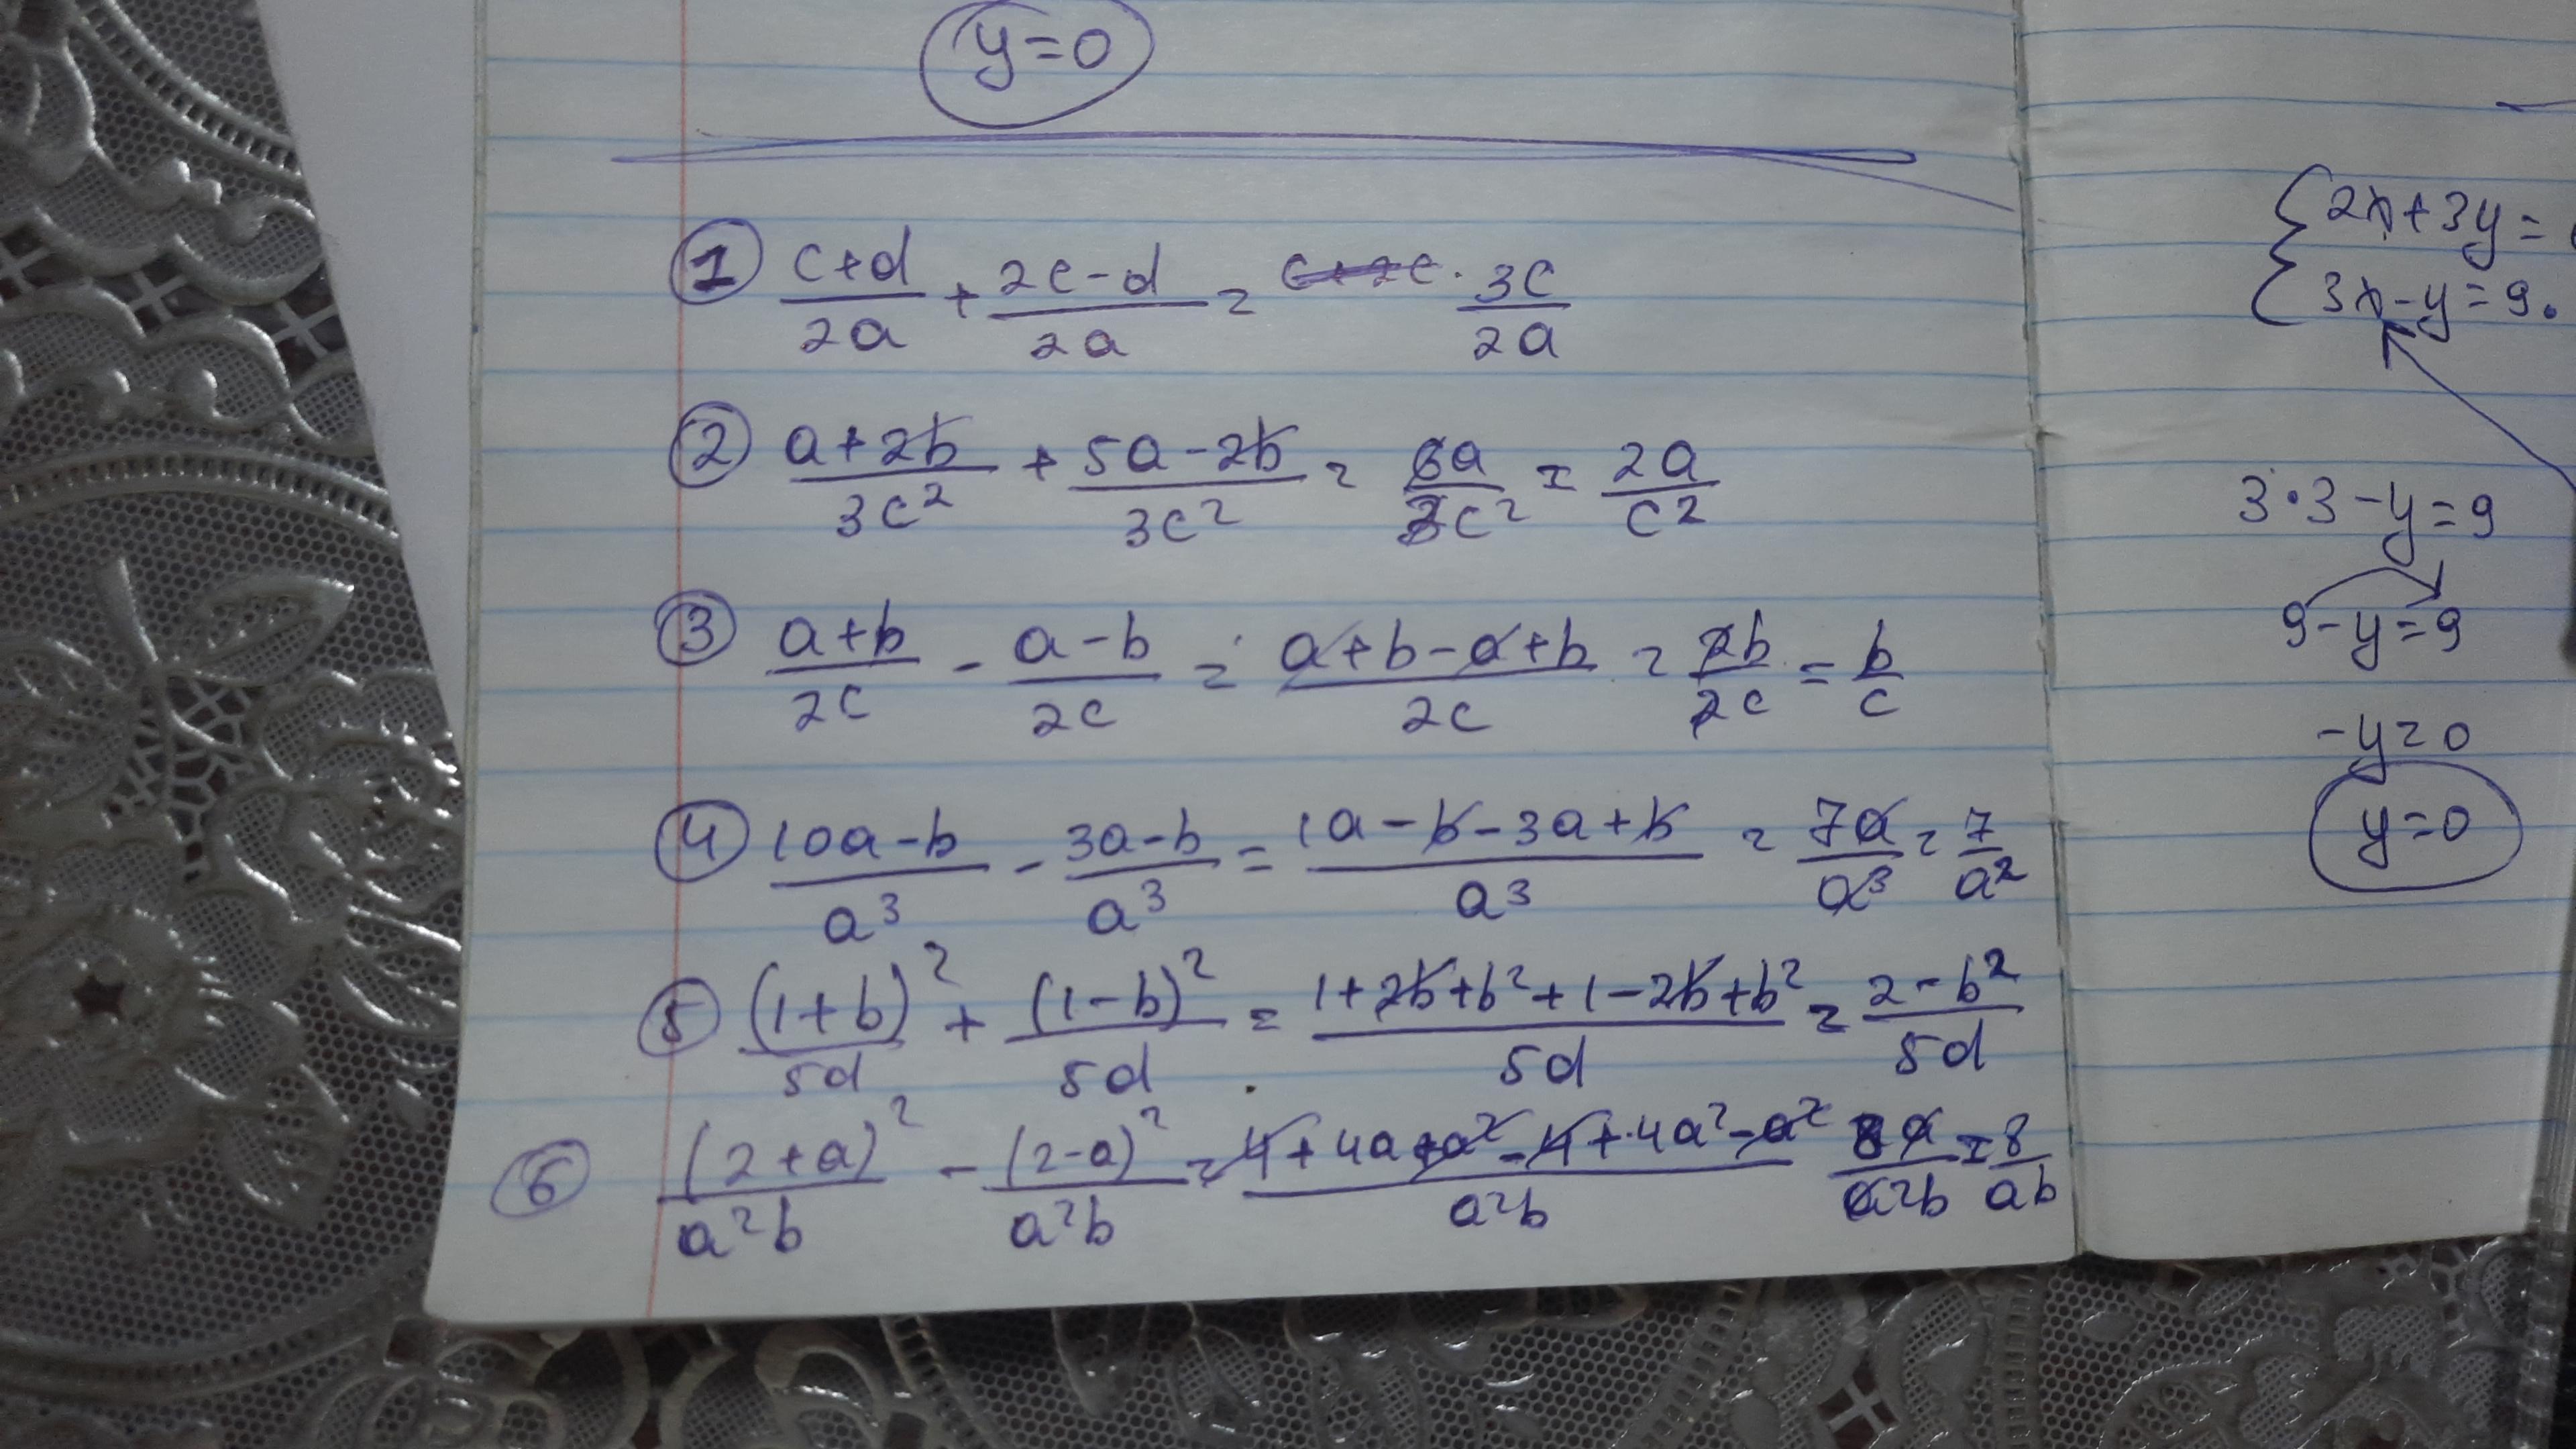 y=0
① (c+d)/(2a) + (2c-d)/(2a) = 3c/(2a)
② (a+2b)/(3c²) + (5a-2b)/(3c²) = 6a/(3c²) = 2a/c²
③ (a+b)/(2c) - (a-b)/(2c) = (a+b-a+b)/(2c) = 2b/(2c) = b/c
④ (10a-b)/a³ - (3a-b)/a³ = (1a-b-3a+b)/a³ = 7a/a³ = 7/a²
⑤ (1+b)²/(5d) + (1-b)²/(5d) = (1+2b+b²+1-2b+b²)/(5d) = (2-b²)/(5d)
⑥ (2+a)²/(a²b) - (2-a)²/(a²b) = (4+4a+a²-4+4a²-a²)/(a²b) 8a/(a²b) = 8/(ab)
{2x+3y=
3x-y=9.
3·3-y=9
9-y=9
-y=0
y=0